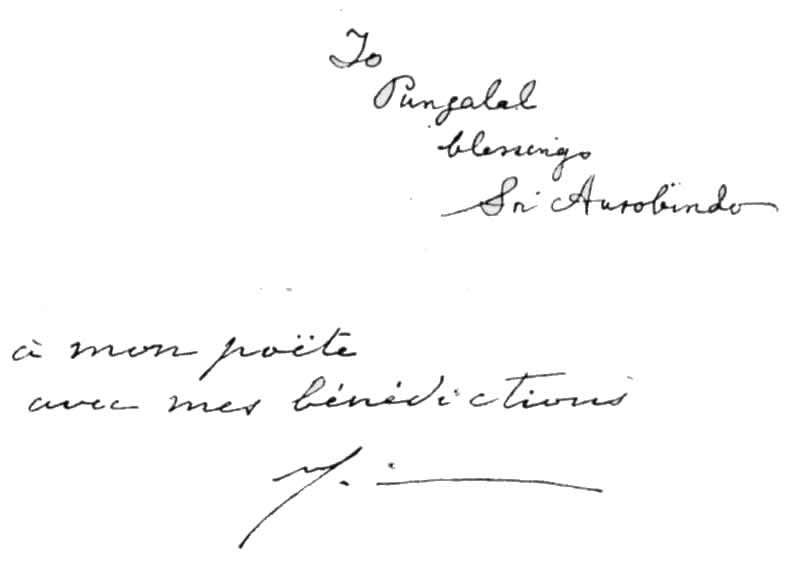 To
Pungalal
blessings
Sri Aurobindo
à mon poëte
avec mes bénédictions